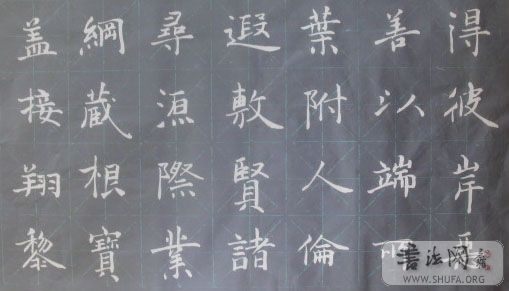 得彼岸
善以端
葉附人倫
遐敷賢諸
尋源際業
綱蔵根寶
盖接翔黎
書法网
WWW.SHUFA.ORG